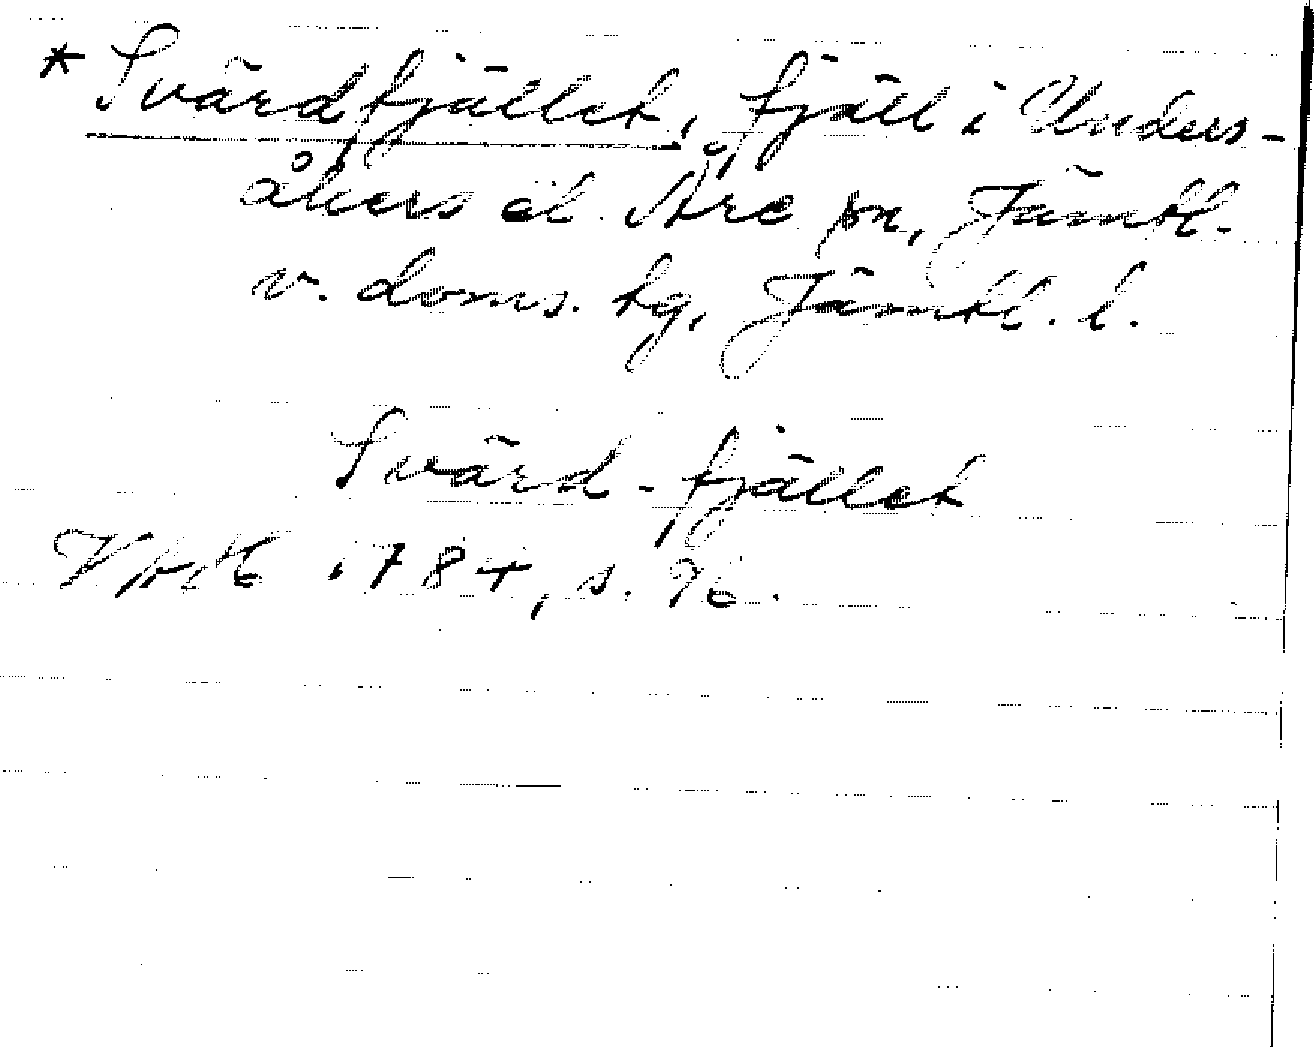 * Svärdfjället, fjäll i Unders-
åkers el. Åre sn, Jämtl.
v. doms. tg, Jämtl. l.
Svärd-fjället
1784, s. 96.